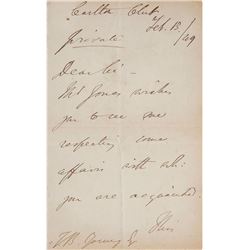 Carlton Club
Feb. 18/49
private
Dear Sir –
Mr Jones wishes
you to see me
respecting some
affairs with wh:
you are acquainted.
This